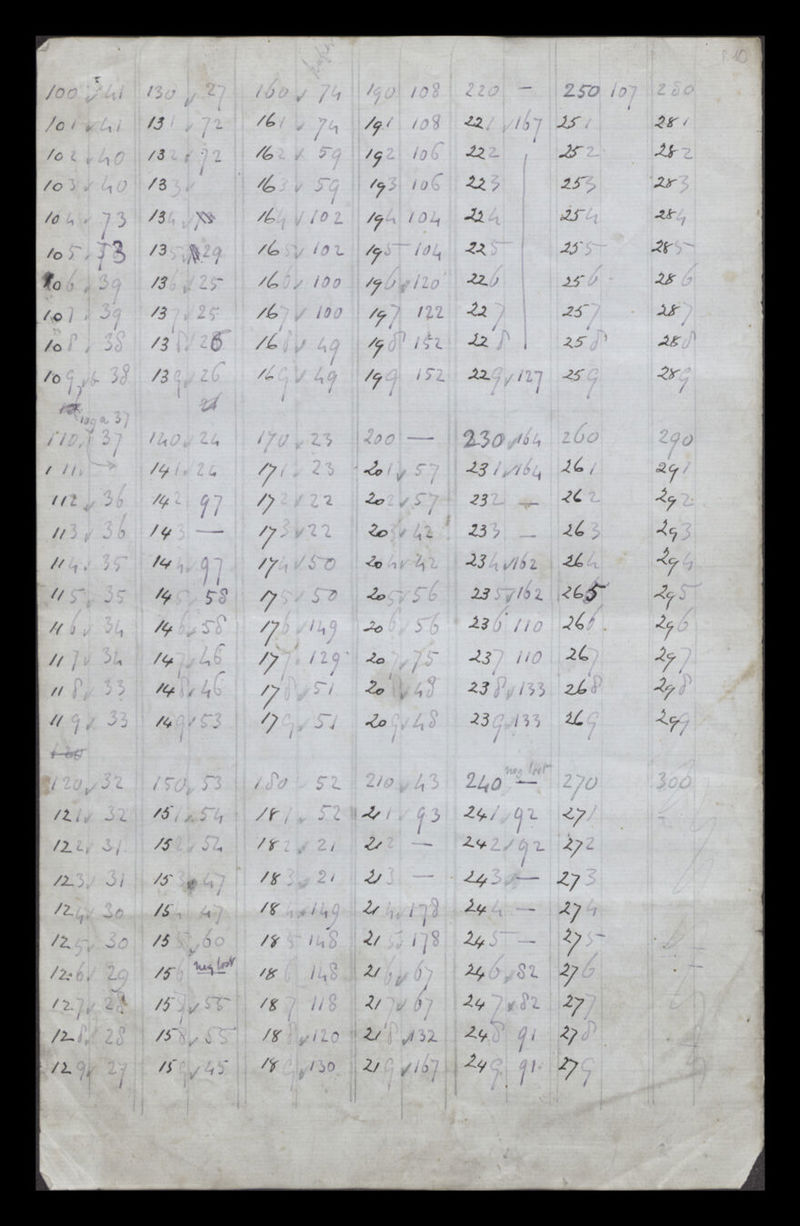 100 √ 41 130 √ 27 160 √ 74 190 108 220 — 250 107 280
101 √ 41 131 √ 72 161 √ 74 191 108 221 √ 167 251 281
102 √ 40 132 √ 72 162 √ 59 192 106 222 252 282
103 √ 40 133 √ 163 √ 59 193 106 223 253 283
104 √ 73 134 √ 164 √ 102 194 104 224 254 284
105 √ 73 135 √ 29 165 √ 102 195 104 225 255 285
106 √ 39 136 √ 25 166 √ 100 196 √ 120 226 256 286
107 √ 39 137 √ 25 167 √ 100 197 122 227 257 287
108 √ 38 138 √ 26 168 √ 49 198 152 228 258 288
109 √ b 38 139 √ 26 169 √ 49 199 152 229 √ 127 259 289
109a 37
110 √ 37 140 √ 24 170 √ 23 200 — 230 √ 164 260 290
111 √ 141 √ 24 171 √ 23 201 √ 57 231 √ 164 261 291
112 √ 36 142 97 172 √ 22 202 √ 57 232 — 262 292
113 √ 36 143 — 173 √ 22 203 √ 42 233 — 263 293
114 √ 35 144 √ 97 174 √ 50 204 √ 42 234 √ 162 264 294
115 √ 35 145 √ 58 175 √ 50 205 √ 56 235 √ 162 265 295
116 √ 34 146 √ 58 176 √ 149 206 √ 56 236 110 266 296
117 √ 34 147 √ 46 177 √ 129 207 √ 75 237 110 267 297
118 √ 33 148 √ 46 178 √ 51 208 √ 48 238 √ 133 268 298
119 √ 33 149 √ 53 179 √ 51 209 √ 48 239 √ 133 269 299
120
neg lost
120 √ 32 150 √ 53 180 52 210 √ 43 240 — 270 300
121 √ 32 151 √ 54 181 √ 52 211 √ 93 241 √ 92 271
122 √ 31 152 √ 54 182 √ 21 212 — 242 √ 92 272
123 √ 31 153 √ 47 183 √ 21 213 — 243 √ — 273
124 √ 30 154 47 184 √ 149 214 √ 178 244 — 274
125 √ 30 155 √ 60 185 148 215 √ 178 245 — 275
126 √ 29 156 neg lost 186 148 216 √ 67 246 √ 82 276
127 √ 28 157 √ 55 187 118 217 √ 67 247 √ 82 277
128 √ 28 158 √ 55 188 √ 120 218 √ 132 248 91 278
129 √ 27 159 √ 45 189 √ 130 219 √ 167 249 91 279